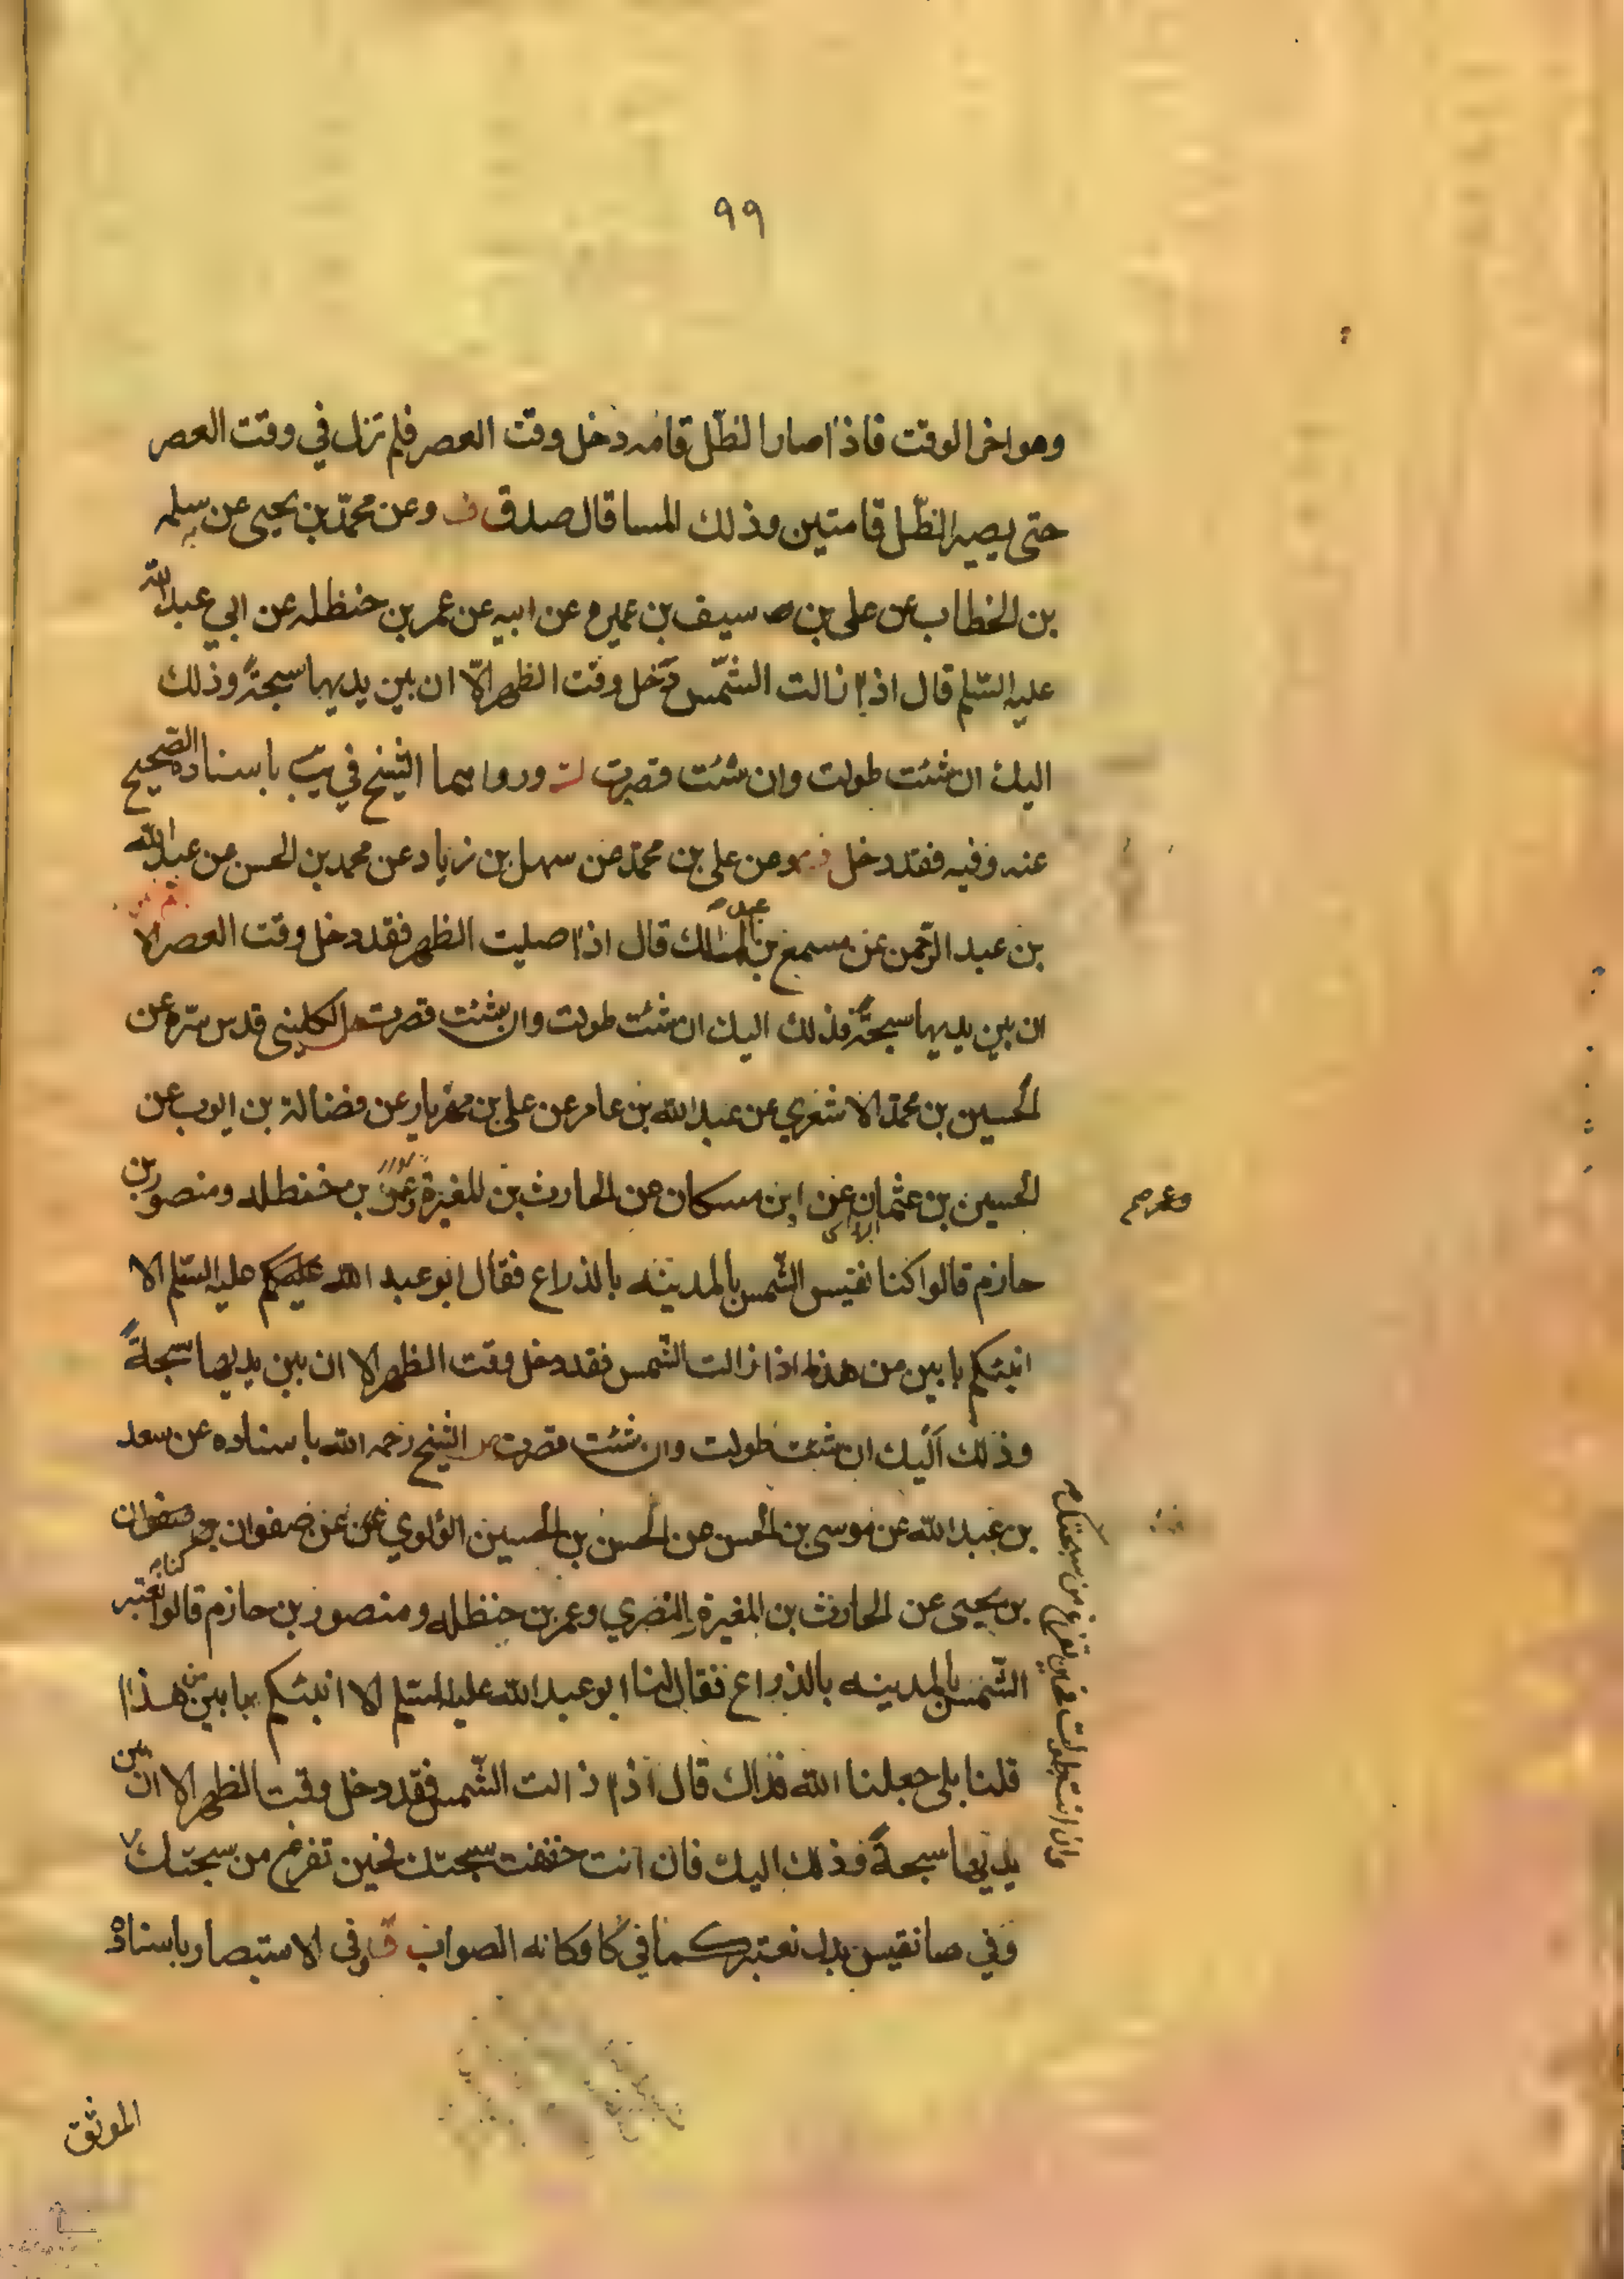 ٩٩
وهو اخر الوقت فاذا صار الظّل قامه دخل وقت العصر فلم تزل في وقت العصر
حتى يصير الظّل قامتين وذلك المسا قال صدق وعن محمّد بن يحيى عن سلمه
بن الخطاب عن على بن سيف بن عميره عن ابيه عن عمر بن حنظله عن ابي عبد الله
عليه السّلم قال اذا زالت الشّمس دخل وقت الظهر الّا ان بين يديها سبحةً وذلك
اليك ان شئت طولت وان شئت قصرت ورواهما الشيخ في يب باسناده الصّحيح
عنه وفيه فقد دخل وعن على بن محمّد عن سهل بن زياد عن محمد بن الحسن عن عبد الله
بن عبد الرّحمن عن مسمع بن عبد الملك قال اذا صليت الظهر فقد دخل وقت العصر الا
ان بين يديها سبحةً فذلك اليك ان شئت طولت وان شئت قصرت الكليني قدس سرّه عن
الحسين بن محمّد الاشعري عن عبد الله بن عامر عن على بن مهزيار عن فضالة بن ايوب عن
الحسين بن عثمان عن ابن مسكان عن الحارث بن المغيرة وعمر بن حنظله ومنصور بن
وعمر صح
حازم قالوا كنا نقيس الشّمس بالمدينه بالذراع فقال ابو عبد الله عليه السّلم الا
انبئكم بابين من هذا اذا زالت الشّمس فقد دخل وقت الظهر الا ان بين يديها سبحةً
وذلك اليك ان شئت طولت وان شئت قصرت الشيخ رحمه الله باسناده عن سعد
بن عبد الله عن موسى بن الحسن عن الحسن بن الحسين الؤلوي عن صفوان
بن يحيى عن الحارث بن المغيرة النصري وعمر بن حنظله ومنصور بن حازم قالوا كنا نعتبر
الشّمس بالمدينه بالذراع فقال لنا ابو عبد الله عليه السّلم الا انبئكم بابين من هذا
قلنا بلى جعلنا الله فداك قال اذا زالت الشّمس فقد دخل وقت الظهر الا ان بين
يديها سبحةً وذلك اليك فان انت خففت سبحتك فحين تفرغ من سبحتك
وان انت طولت فحين تفرغ من سبحتك
وفي صا نقيس بدل نعتبر كما في كا وكانه الصواب وفى الاستبصار باسناده
الموثق